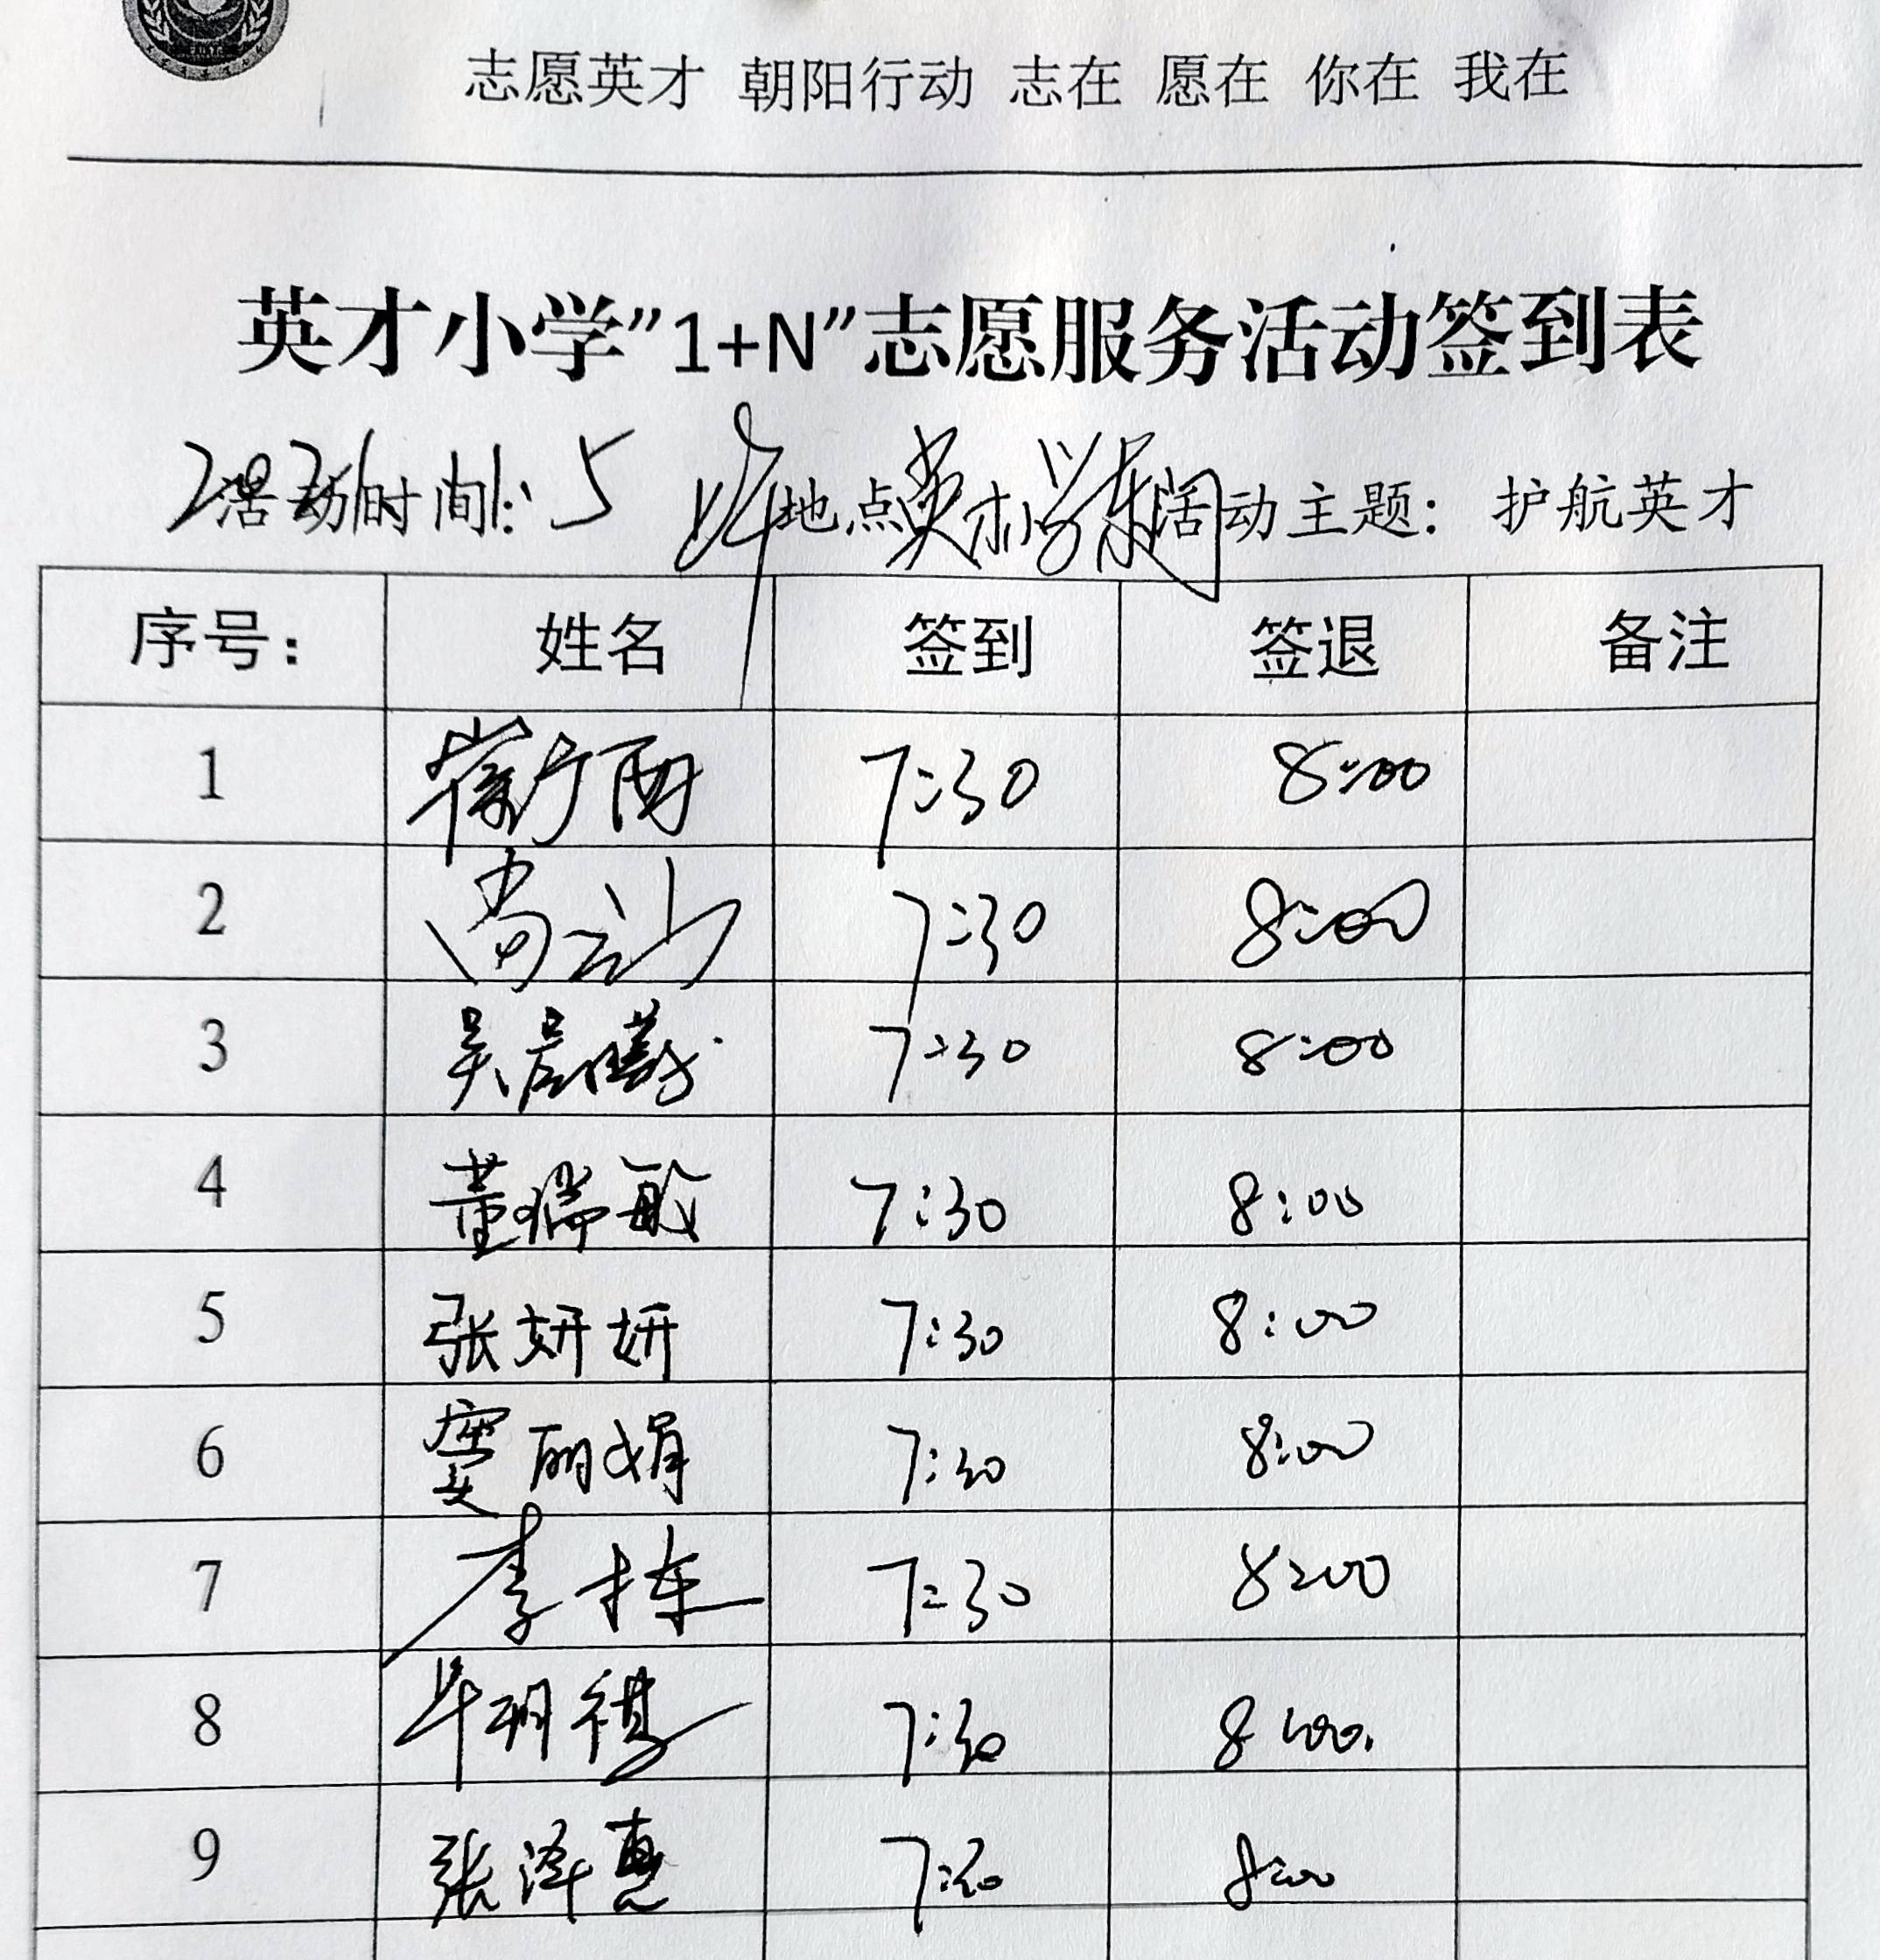 志愿英才 朝阳行动 志在 愿在 你在 我在
英才小学”1+N”志愿服务活动签到表
活动时间: 地点 英才小学东 活动主题: 护航英才
序号: 姓名 签到 签退 备注
1 7:30 8:00
2 尚云 7:30 8:00
3 吴晨曦 7:30 8:00
4 董瑞敏 7:30 8:00
5 张妍妍 7:30 8:00
6 窦丽娟 7:30 8:00
7 李栋 7:30 8:00
8 牟玥祺 7:30 8:00
9 张泽惠 7:30 8:00